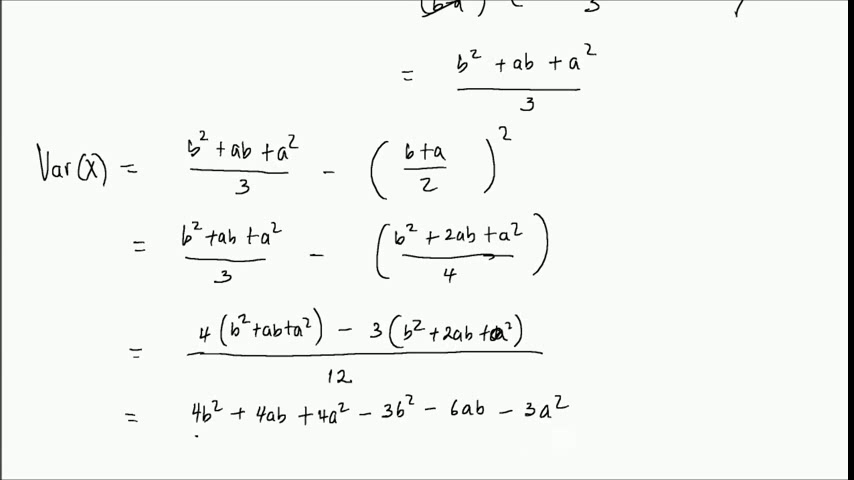 = b² + ab + a² / 3
Var(X) = b² + ab + a² / 3 - ( b+a / 2 )²
= b² + ab + a² / 3 - ( b² + 2ab + a² / 4 )
= 4(b² + ab + a²) - 3(b² + 2ab + a²) / 12
= 4b² + 4ab + 4a² - 3b² - 6ab - 3a²